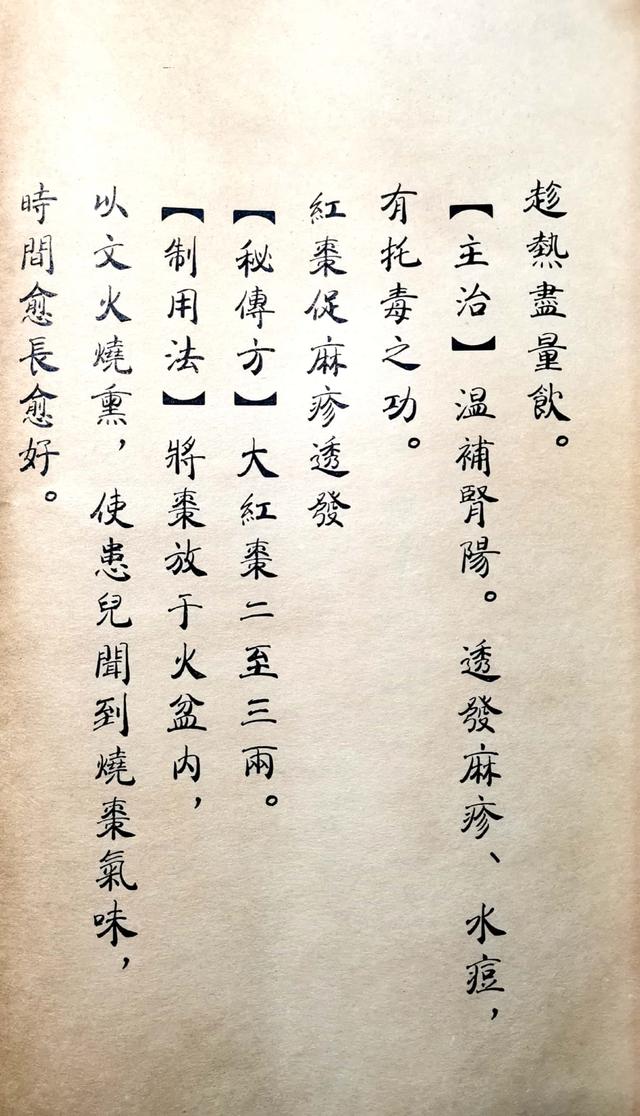 趁熱盡量飲。
【主治】温補腎陽。透發麻疹、水痘，
有托毒之功。
紅棗促麻疹透發
【秘傳方】大紅棗二至三兩。
【制用法】將棗放于火盆内，
以文火燒熏，使患兒聞到燒棗氣味，
時間愈長愈好。